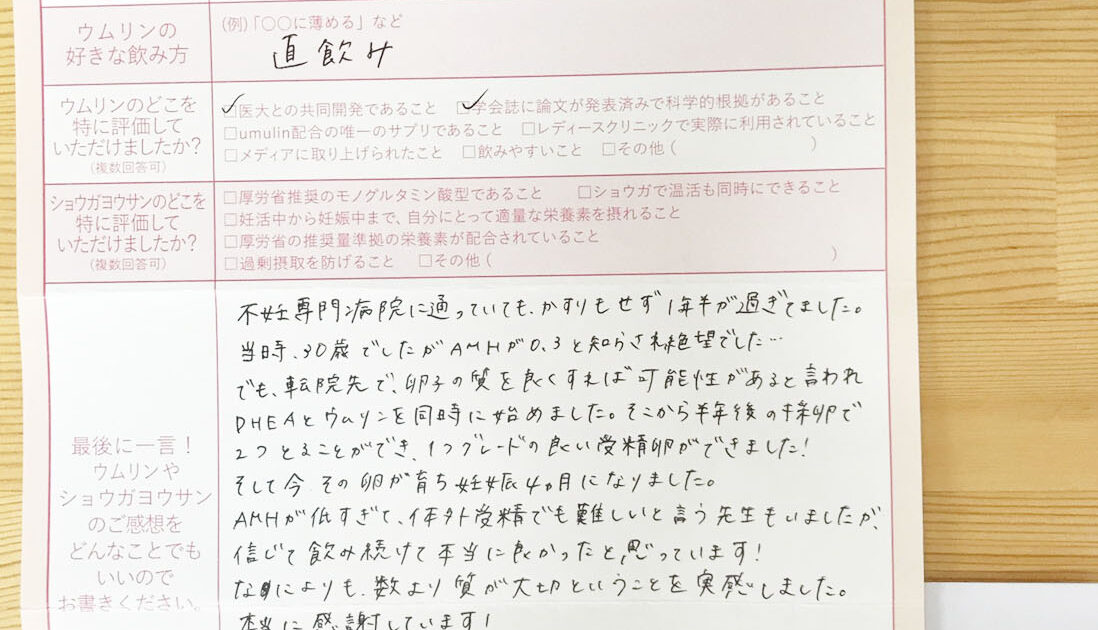 ウムリンの
好きな飲み方
(例)「〇〇に薄める」など
直飲み
ウムリンのどこを
特に評価して
いただけましたか?
(複数回答可)
☑医大との共同開発であること ☑学会誌に論文が発表済みで科学的根拠があること
□umulin配合の唯一のサプリであること □レディースクリニックで実際に利用されていること
□メディアに取り上げられたこと □飲みやすいこと □その他( )
ショウガヨウサンのどこを
特に評価して
いただけましたか?
(複数回答可)
□厚労省推奨のモノグルタミン酸型であること □ショウガで温活も同時にできること
□妊活中から妊娠中まで、自分にとって適量な栄養素を摂れること
□厚労省の推奨量準拠の栄養素が配合されていること
□過剰摂取を防げること □その他( )
最後に一言!
ウムリンや
ショウガヨウサン
のご感想を
どんなことでも
いいので
お書きください。
不妊専門病院に通っていても、かすりもせず1年半が過ぎてました。
当時、30歳でしたがAMHが0.3と知らされ絶望でした…
でも、転院先で、卵子の質を良くすれば可能性があると言われ
DHEAとウムリンを同時に始めました。そこから半年後の採卵で
2つとることができ、1つグレードの良い受精卵ができました!
そして今 その卵が育ち妊娠4ヵ月になりました。
AMHが低すぎて、体外受精でも難しいと言う先生もいましたが、
信じて飲み続けて本当に良かったと思っています!
なにによりも、数より質が大切ということを実感しました。
本当に感謝しています!